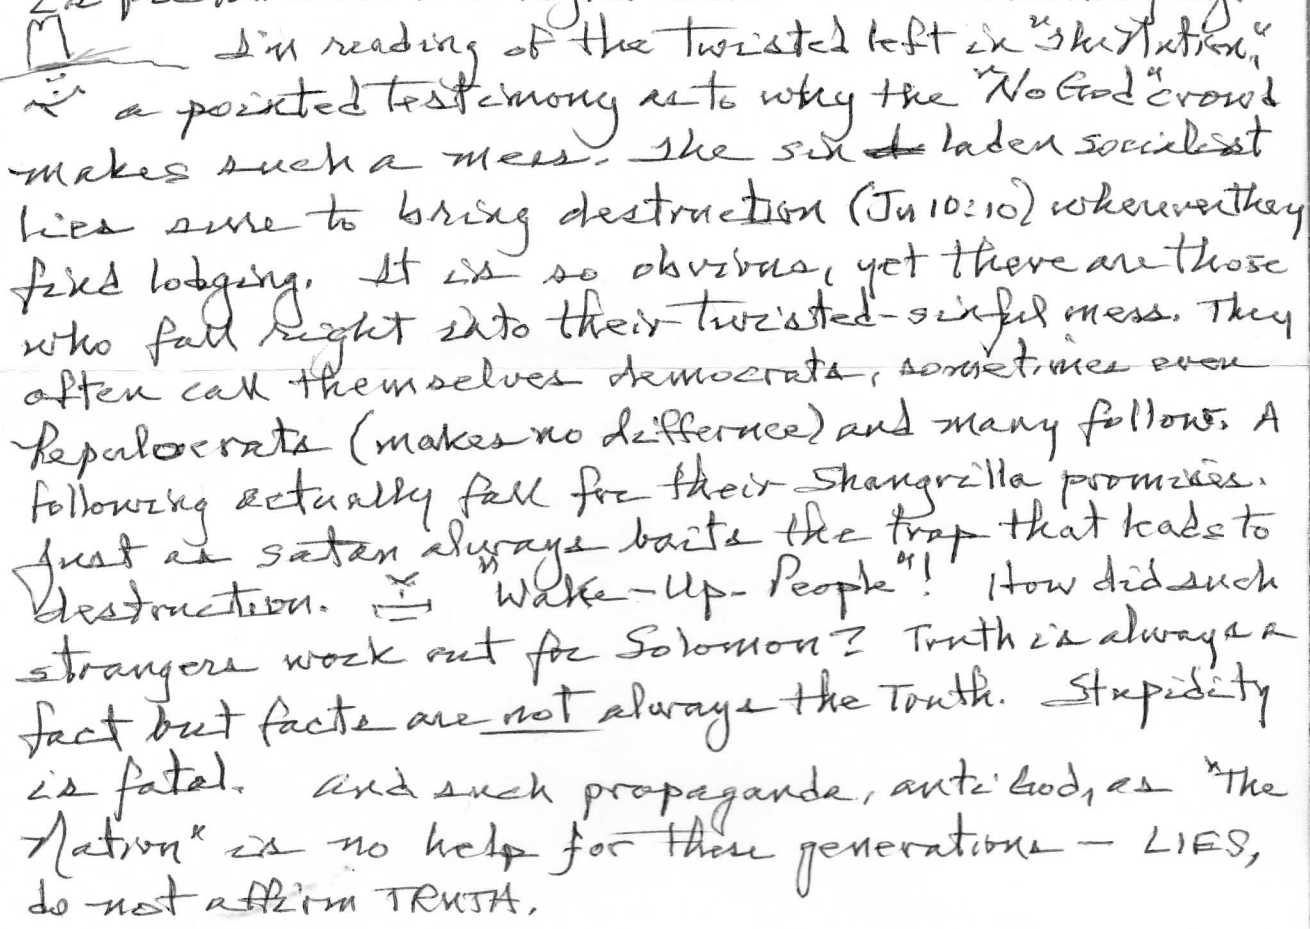 I'm reading of the twisted left in "The Nation,"
a pointed testimony as to why the "No God" crowd
makes such a mess. The sin laden socialist
lies sure to bring destruction (Jn 10:10) wherever they
find lodging. It is so obvious, yet there are those
who fall right into their twisted-sinful mess. They
often call themselves democrats, sometimes even
Republocrats (makes no differnce) and many follow. A
following actually fall for their Shangrilla promises.
Just as satan always baits the trap that leads to
destruction. "Wake-Up-People"! How did such
strangers work out for Solomon? Truth is always a
fact but facts are not always the Truth. Stupidity
is fatal. And such propaganda, anti God, as "The
Nation" is no help for these generations - LIES,
do not affirm TRUTH.